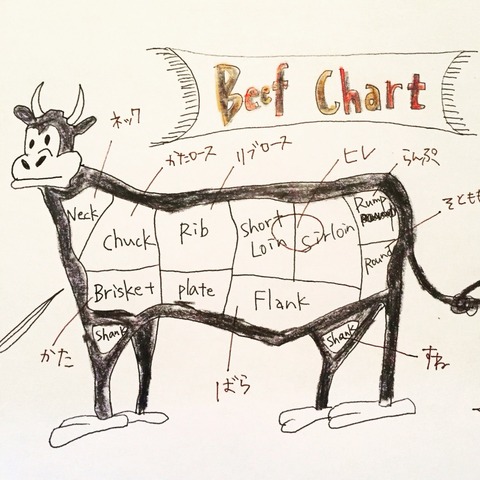 Beef Chart
ネック
かたロース
リブロース
ヒレ
らんぷ
そともも
Neck
Chuck
Rib
Short Loin
Sirloin
Rump
Round
Brisket
plate
Flank
Shank
Shank
かた
ばら
すね